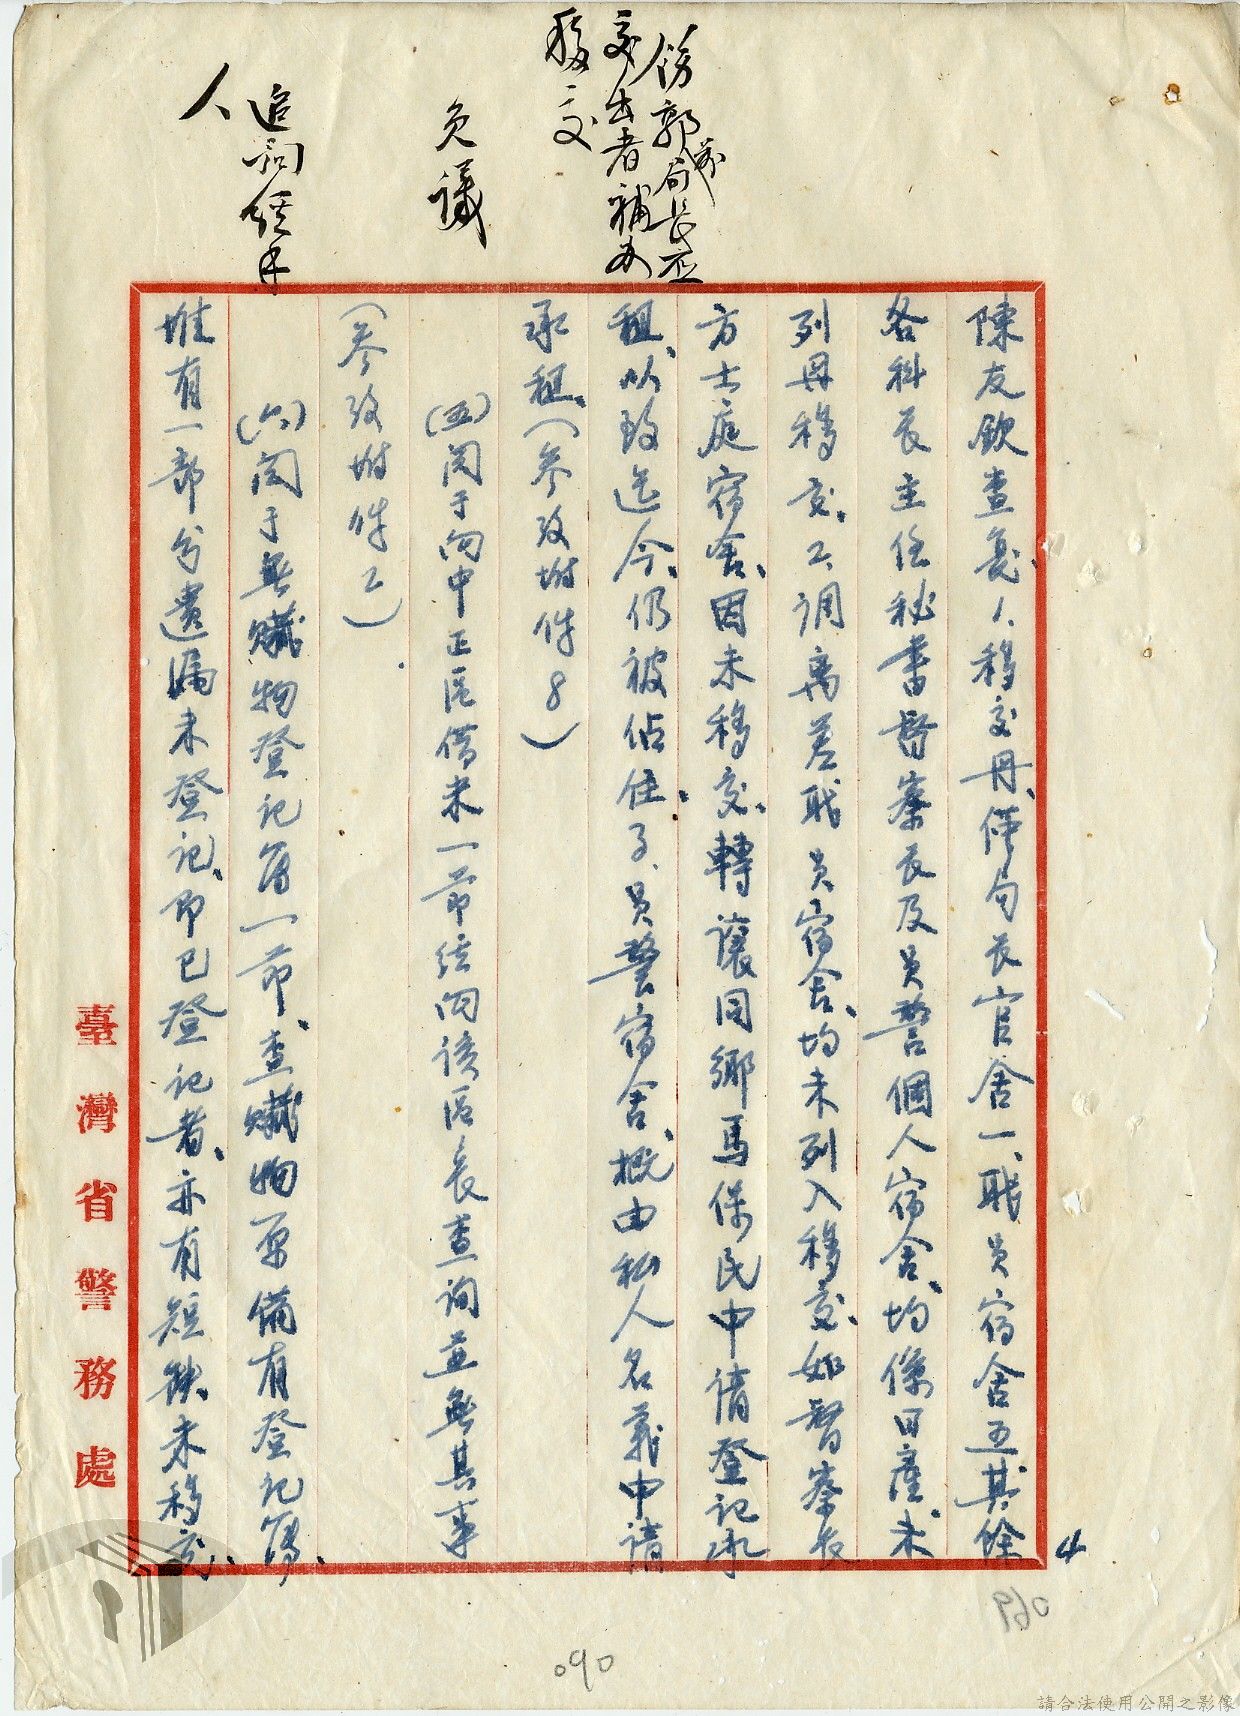 飭郭前局長應
交出者補為
移交
免議
追詢經手
人
陳友欽查復1.移交冊僅局長官舍一、職員宿舍五、其餘
各科長主任秘書督察長及員警個人宿舍、均係日產、未
列冊移交、2.調离差職員宿舍、均未列入移交、如督察長
方士庭宿舍、因未移交、轉讓同鄉馬保民申請登記承
租、以致迄今、仍被佔住、3.員警宿舍、概由私人名義申請
承租、(參攷附件8)
(五)関于向中正區借米一節經向該區長查詢並無其事
(參攷附件2)
(六)関于無贓物登記簿一節、查贓物原備有登記簿、
惟有一部分遺漏未登記、即已登記者、亦有短缺未移交、
臺灣省警務處
4
090
069
請合法使用公開之影像